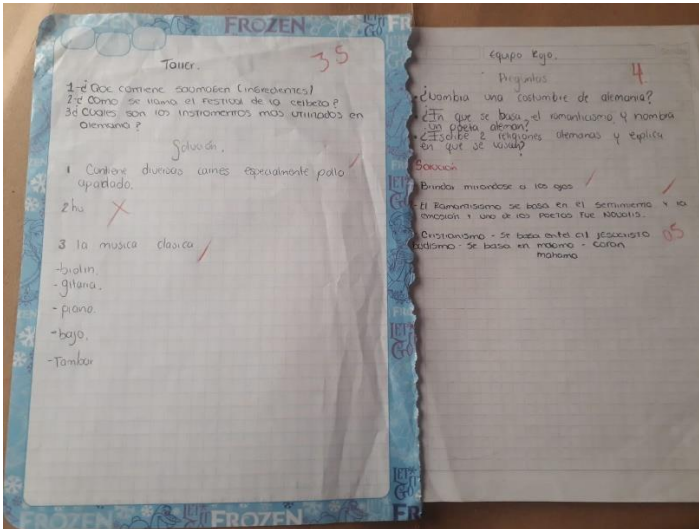 FROZEN
Taller.
35
1-¿ Que contiene saumagen (ingredientes)
2¿ Como se llama el festival de la cerbeza?
3¿ Cuales son los instrumentos mas utilizados en
alemania?
Solución.
1 Contiene diversas carnes especialmente pollo
apardado.
2 hu
3 la musica clasica
-biolin.
-gitarra.
- piano.
-bajo.
-Tambor
LET IT GO
FROZEN
Equipo Rojo.
Preguntas
4
¿Nombra una costumbre de alemania?
¿En que se basa el romanticismo y nombra
un poeta aleman?
¿Escribe 2 religiones alemanas y explica
en que se vasan?
Solución
Brindar mirandose a los ojos
El Romantisismo se basa en el sentimiento y la
emosion y uno de los poetas fue Novalis.
Cristianismo - Se basa en jesucristo
05
budismo - Se basa en - coran
mahoma